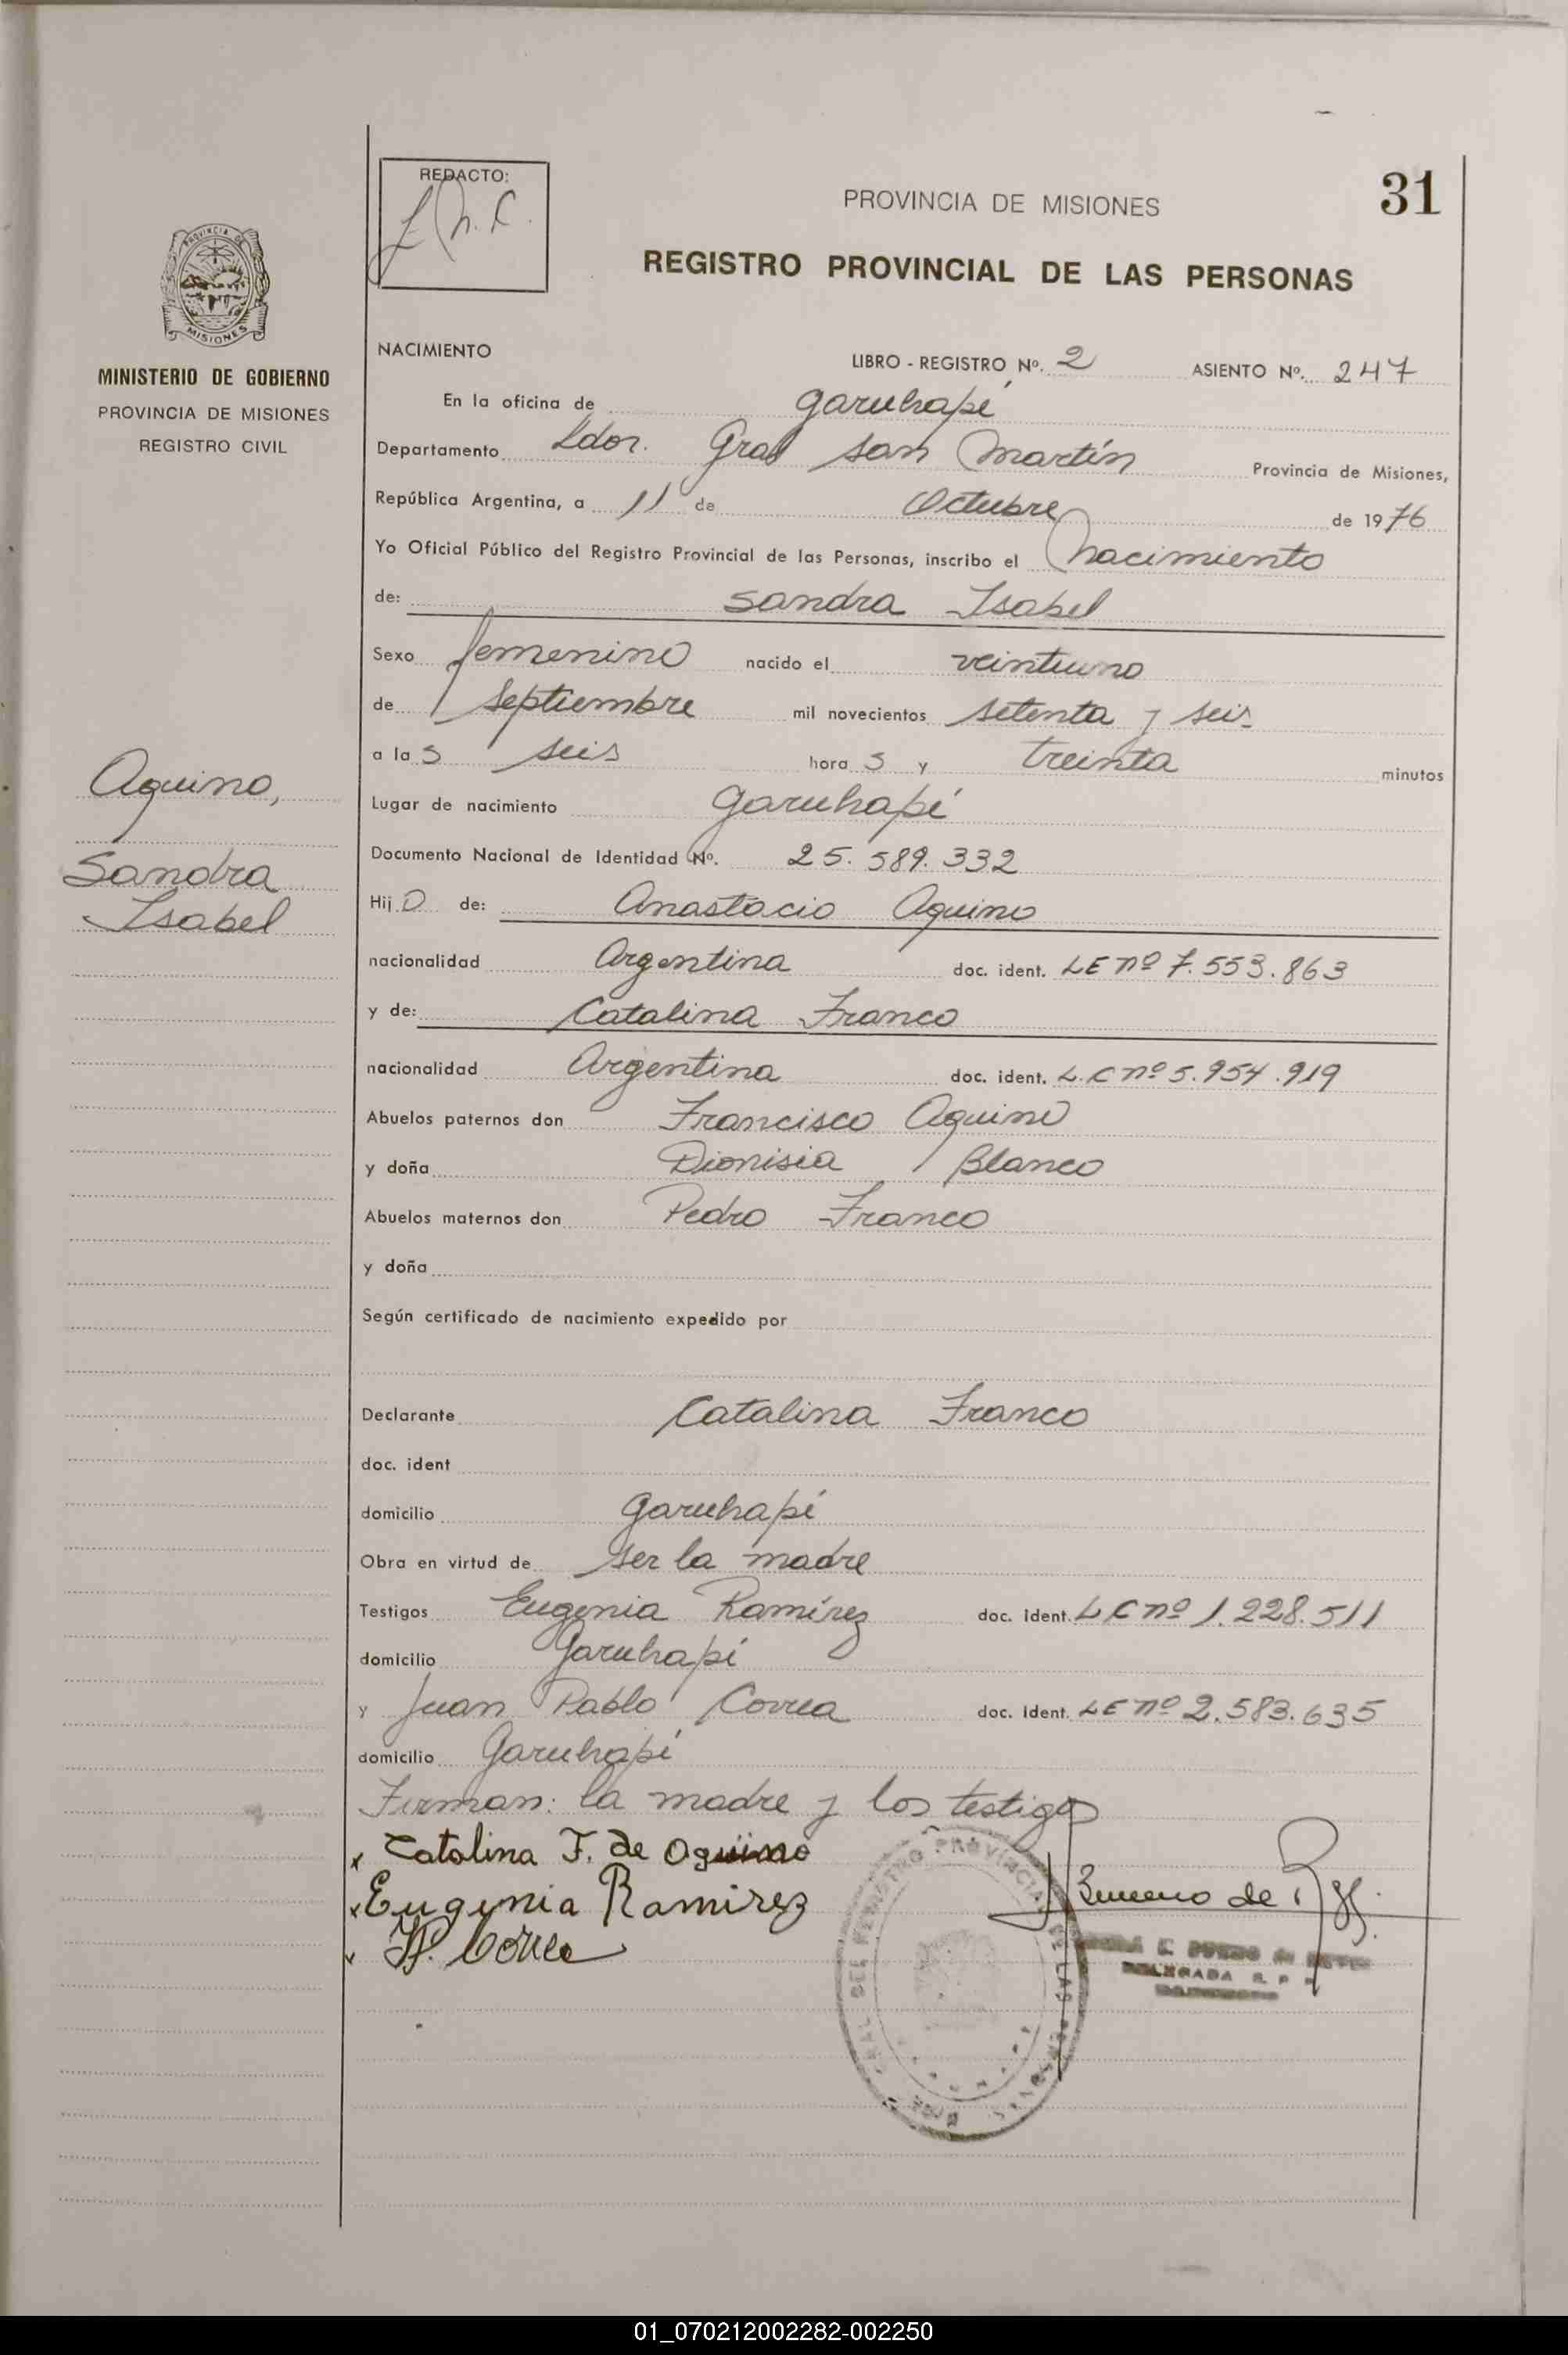 REDACTO:
PROVINCIA DE MISIONES
31
REGISTRO PROVINCIAL DE LAS PERSONAS
PROVINCIA DE
MISIONES
MINISTERIO DE GOBIERNO
PROVINCIA DE MISIONES
REGISTRO CIVIL
NACIMIENTO
LIBRO - REGISTRO Nº. 2 ASIENTO Nº. 247
En la oficina de Garuhapé
Departamento Ldor. Gral San Martín Provincia de Misiones,
República Argentina, a 11 de Octubre de 1976
Yo Oficial Público del Registro Provincial de las Personas, inscribo el Nacimiento
de: Sandra Isabel
Sexo femenino nacido el veintiuno
de septiembre mil novecientos setenta y seis
a las seis horas y treinta minutos
Lugar de nacimiento Garuhapé
Documento Nacional de Identidad Nº. 25.589.332
Hijo de: Anastacio Aquino
nacionalidad Argentina doc. ident. LE nº 7.553.863
y de: Catalina Franco
nacionalidad Argentina doc. ident. L.C nº 5.954.919
Abuelos paternos don Francisco Aquino
y doña Dionisia Blanco
Abuelos maternos don Pedro Franco
y doña
Según certificado de nacimiento expedido por
Declarante Catalina Franco
doc. ident
domicilio Garuhapé
Obra en virtud de ser la madre
Testigos Eugenia Ramírez doc. ident. LC nº 1.228.511
domicilio Garuhapí
y Juan Pablo Correa doc. ident. LE nº 2.583.635
domicilio Garuhapé
Firman: la madre y los testigos
x Catalina F. de Aquino
x Eugenia Ramirez
Aquino,
Sandra
Isabel
DELEGADA R. P.
01_070212002282-002250